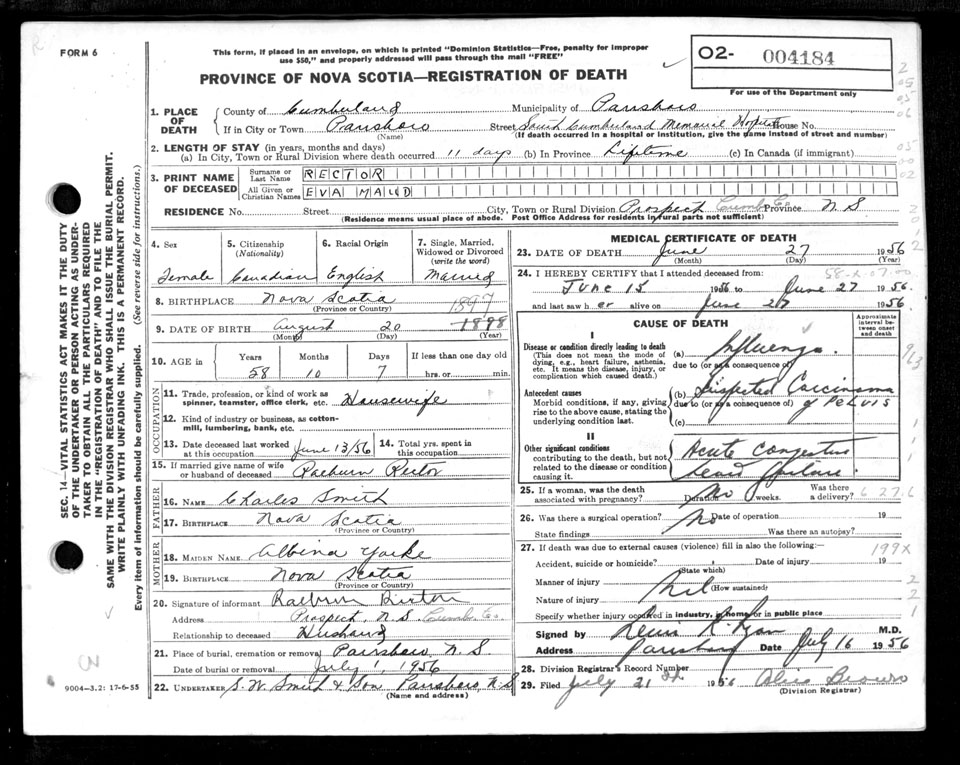 FORM 6
This form, if placed in an envelope, on which is printed "Dominion Statistics—Free, penalty for improper
use $50," and properly addressed will pass through the mail "FREE"
PROVINCE OF NOVA SCOTIA—REGISTRATION OF DEATH
O2- 004184
For use of the Department only
1. PLACE OF DEATH
County of Cumberland Municipality of Parrsboro
If in City or Town Parrsboro Street South Cumberland Memorial Hospital House No.
(Name) (If death occurred in a hospital or institution, give the name instead of street and number)
2. LENGTH OF STAY (in years, months and days)
(a) In City, Town or Rural Division where death occurred 11 days (b) In Province Lifetime (c) In Canada (if immigrant)
3. PRINT NAME OF DECEASED
Surname or Last Name RECTOR
All Given or Christian Names EVA MAUD
RESIDENCE No. Street City, Town or Rural Division Prospect Cumb Co. Province N S
(Residence means usual place of abode. Post Office Address for residents in rural parts not sufficient)
4. Sex Female
5. Citizenship (Nationality) Canadian
6. Racial Origin English
7. Single, Married, Widowed or Divorced (write the word) Married
8. BIRTHPLACE Nova Scotia
(Province or Country)
1897
9. DATE OF BIRTH August 20 1898
(Month) (Year)
10. AGE in Years Months Days If less than one day old
58 10 7 hrs. or min.
OCCUPATION
11. Trade, profession, or kind of work as
spinner, teamster, office clerk, etc. Housewife
12. Kind of industry or business, as cotton-
mill, lumbering, bank, etc.
13. Date deceased last worked at this occupation June 13/56
14. Total yrs. spent in this occupation
15. If married give name of wife
or husband of deceased Raeburn Rector
FATHER
16. NAME Charles Smith
17. BIRTHPLACE Nova Scotia
(Province or Country)
MOTHER
18. MAIDEN NAME Albina Yorke
19. BIRTHPLACE Nova Scotia
(Province or Country)
20. Signature of informant Raeburn Rector
Address Prospect, N.S. Cumb. Co.
Relationship to deceased Husband
21. Place of burial, cremation or removal Parrsboro, N.S.
Date of burial or removal July 1, 1956
22. UNDERTAKER S. W. Smith & Son Parrsboro, N.S
(Name and address)
MEDICAL CERTIFICATE OF DEATH
23. DATE OF DEATH June 27 1956
(Month) (Day) (Year)
24. I HEREBY CERTIFY that I attended deceased from:
June 15 1956 to June 27 1956.
and last saw her alive on June 27 1956
CAUSE OF DEATH
Approximate interval between onset and death
I
Disease or condition directly leading to death
(This does not mean the mode of
dying, e.g., heart failure, asthenia,
etc. It means the disease, injury, or
complication which caused death.)
(a) Influenza
due to (or as a consequence of)
Antecedent causes
Morbid conditions, if any, giving
rise to the above cause, stating the
underlying condition last.
(b) Suspected Carcinoma
due to (or as a consequence of) of Pelvis
(c)
II
Other significant conditions
contributing to the death, but not
related to the disease or condition
causing it.
Acute Congestive
25. If a woman, was the death
associated with pregnancy? No Duration weeks. Was there a delivery?
26. Was there a surgical operation? No Date of operation 19
State findings Was there an autopsy?
27. If death was due to external causes (violence) fill in also the following:
199X
Accident, suicide or homicide? Date of injury 19
(State which)
Manner of injury Nil
(How sustained)
Nature of injury
Specify whether injury occurred in industry, in home or in public place
Signed by M.D.
Address Parrsboro Date July 16 1956
28. Division Registrar's Record Number
29. Filed July 21st 1956
(Division Registrar)
SEC. 14—VITAL STATISTICS ACT MAKES IT THE DUTY
OF THE UNDERTAKER OR PERSON ACTING AS UNDER-
TAKER TO OBTAIN ALL THE PARTICULARS REQUIRED
IN THE "REGISTRATION OF DEATH" AND TO FILE THE
SAME WITH THE DIVISION REGISTRAR WHO SHALL ISSUE THE BURIAL PERMIT.
WRITE PLAINLY WITH UNFADING INK. THIS IS A PERMANENT RECORD.
Every item of information should be carefully supplied. (See reverse side for instructions.)
9004-3.2: 17-6-55